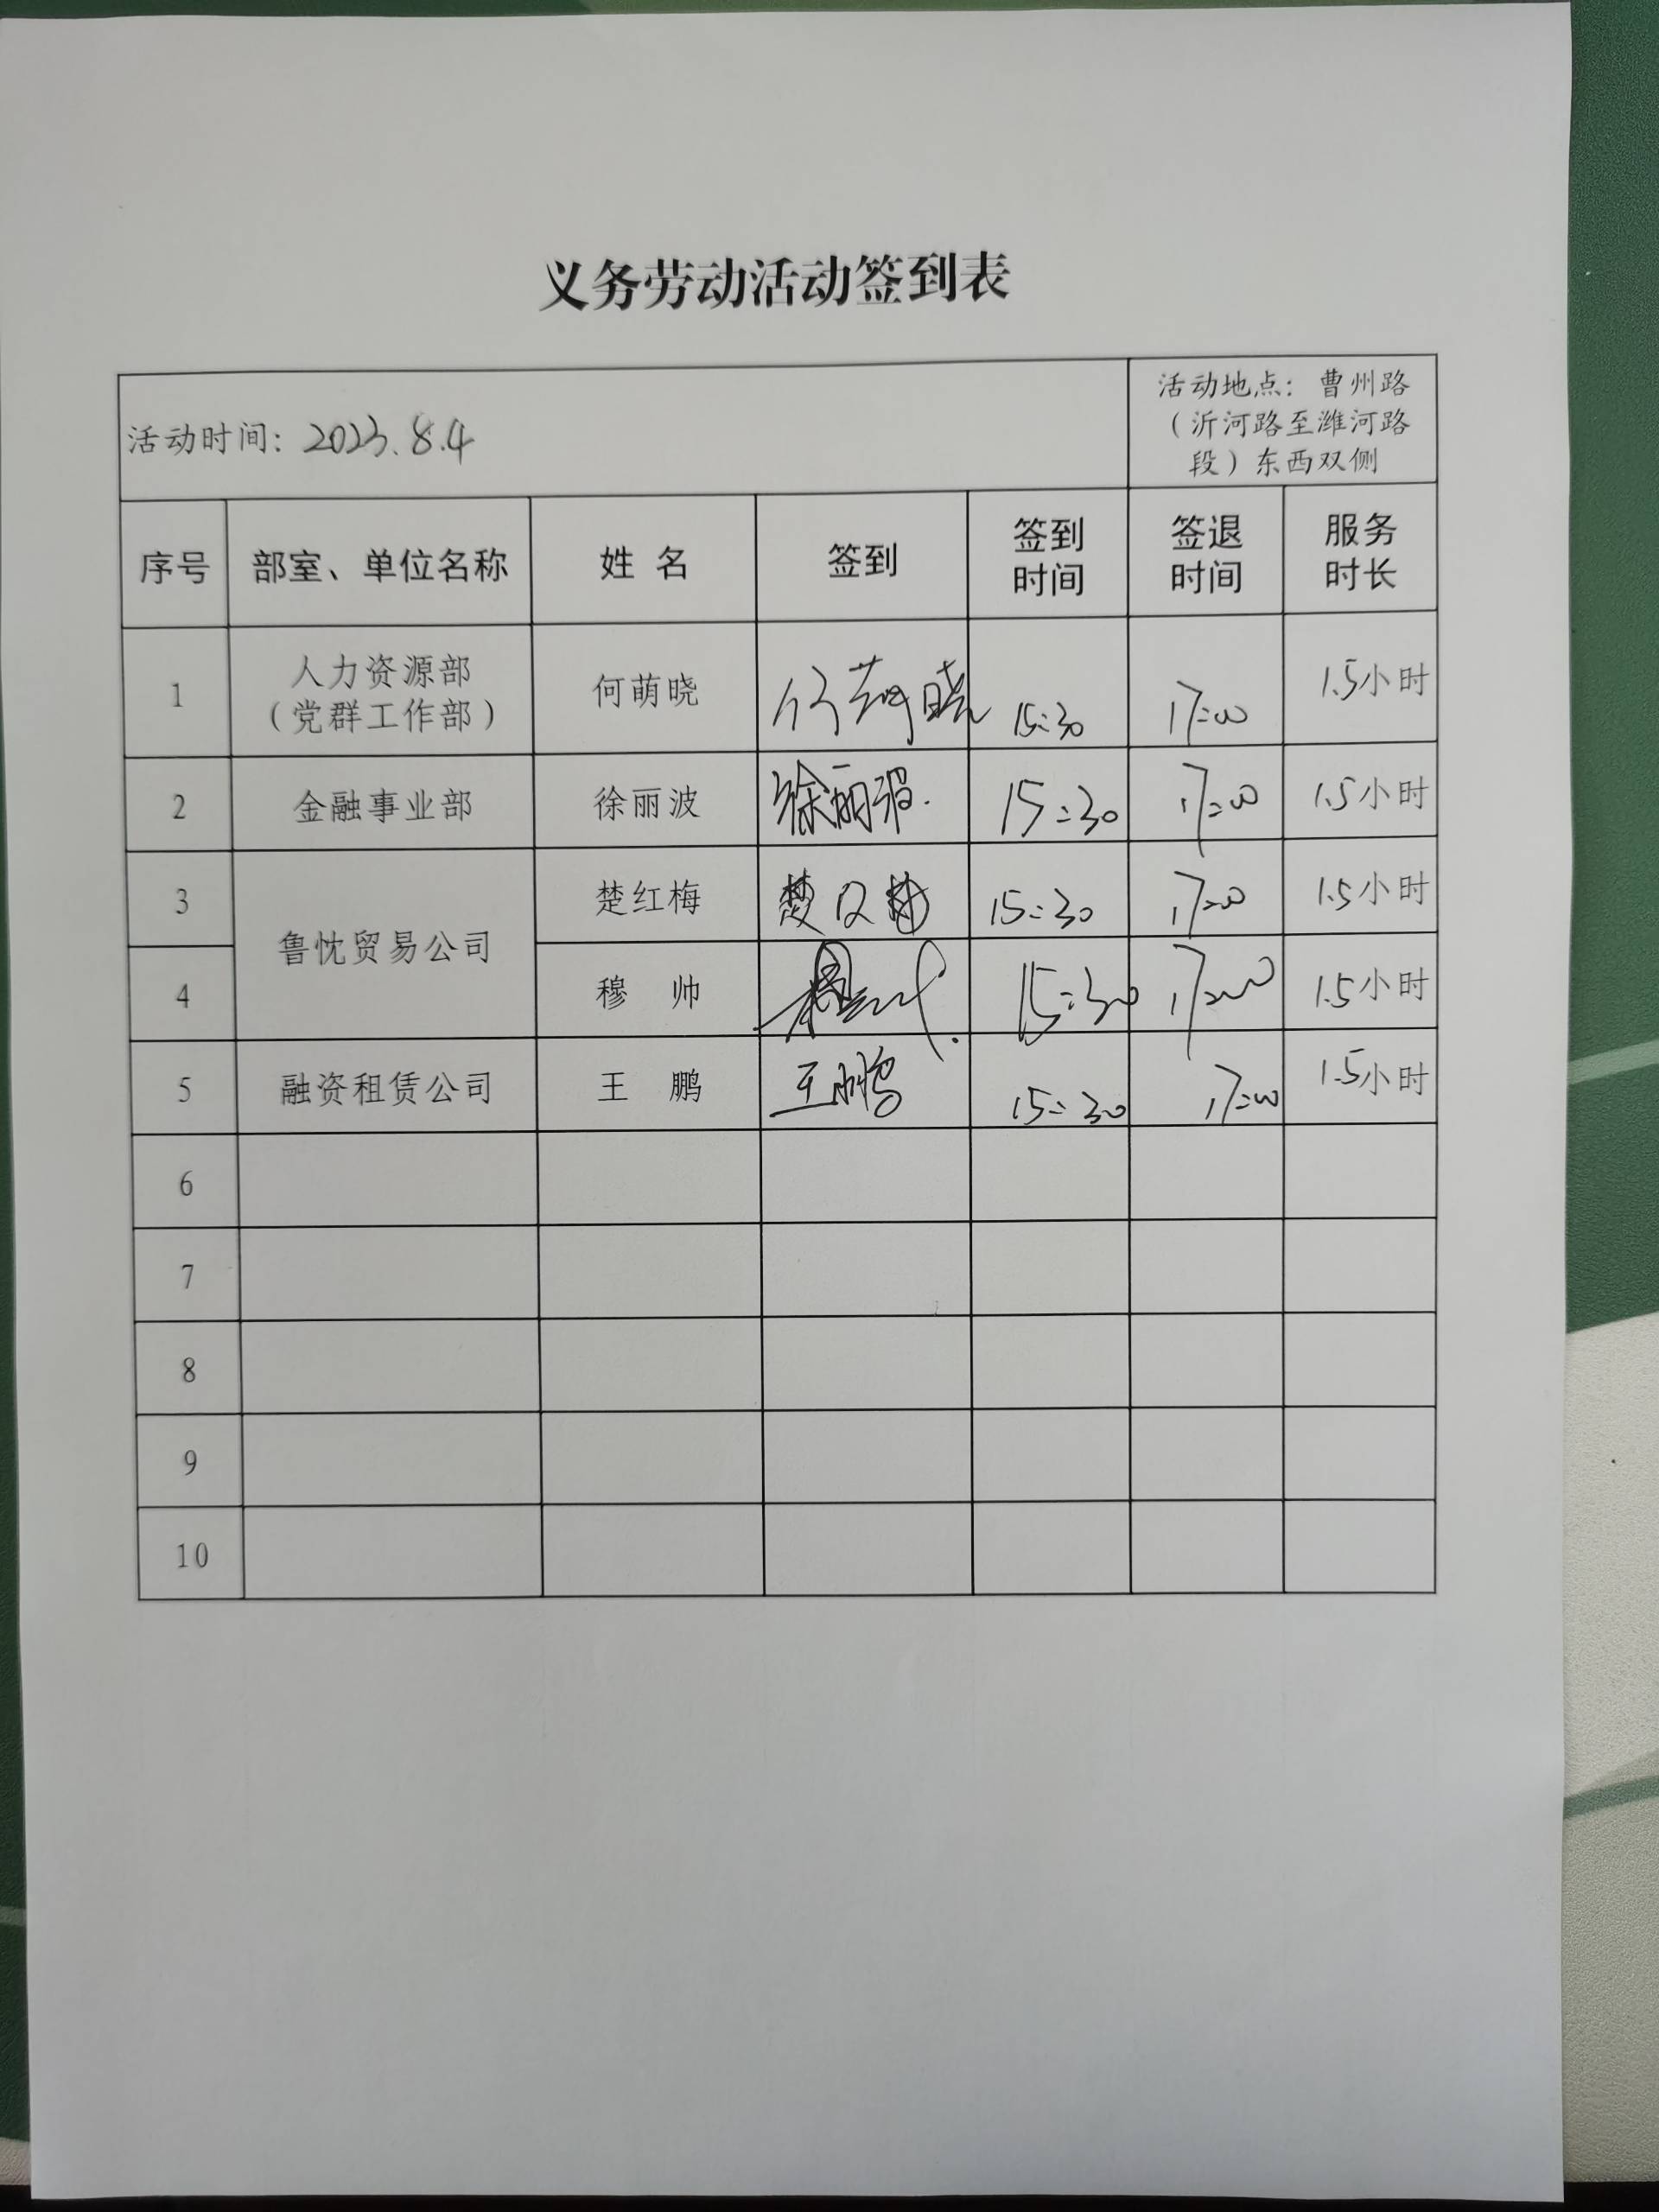 义务劳动活动签到表
活动时间：2023.8.4
活动地点：曹州路
（沂河路至潍河路
段）东西双侧
序号 部室、单位名称 姓 名 签到 签到时间 签退时间 服务时长
1 人力资源部（党群工作部） 何萌晓 何萌晓 15:30 17:00 1.5小时
2 金融事业部 徐丽波 徐丽波 15:30 17:00 1.5小时
3 鲁忱贸易公司 楚红梅 楚红梅 15:30 17:00 1.5小时
4 穆 帅 15:30 17:00 1.5小时
5 融资租赁公司 王 鹏 王鹏 15:30 17:00 1.5小时
6
7
8
9
10